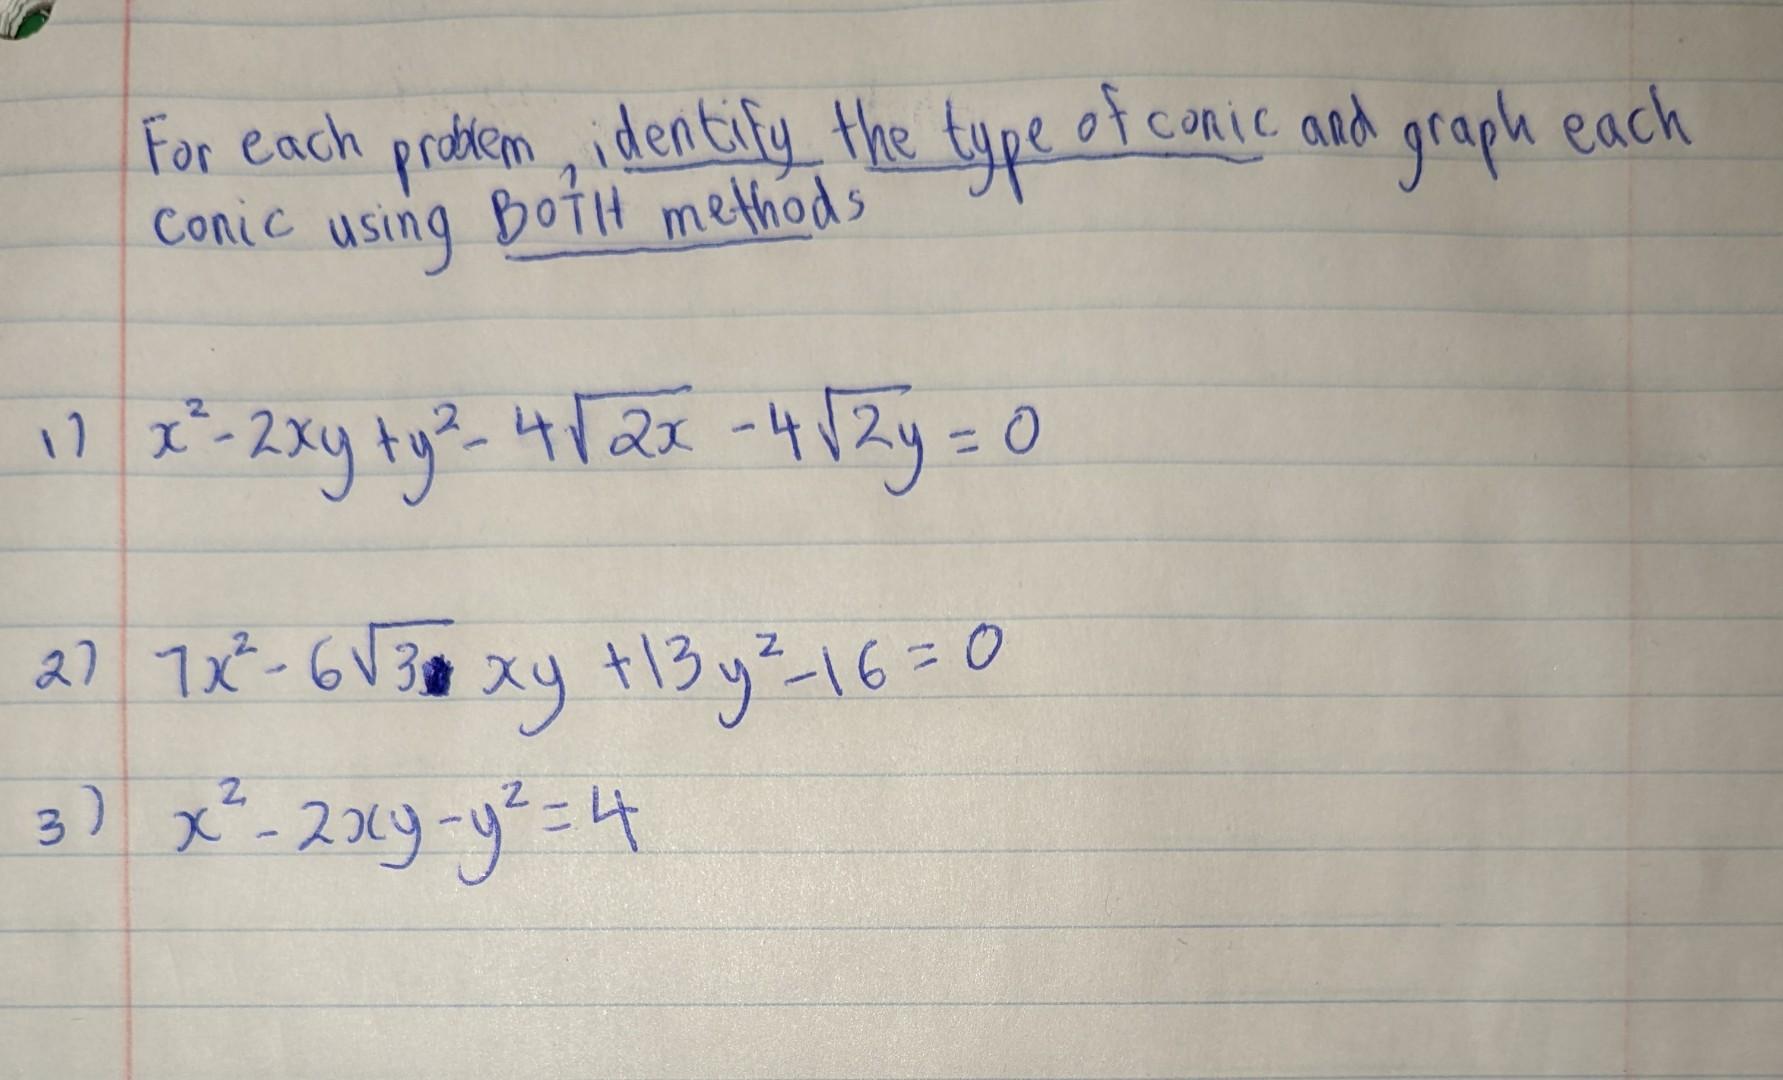 For each problem, identify the type of conic and graph each
conic using BOTH methods
1) x² - 2xy + y² - 4√2x - 4√2y = 0
2) 7x² - 6√3 xy + 13y² - 16 = 0
3) x² - 2xy - y² = 4